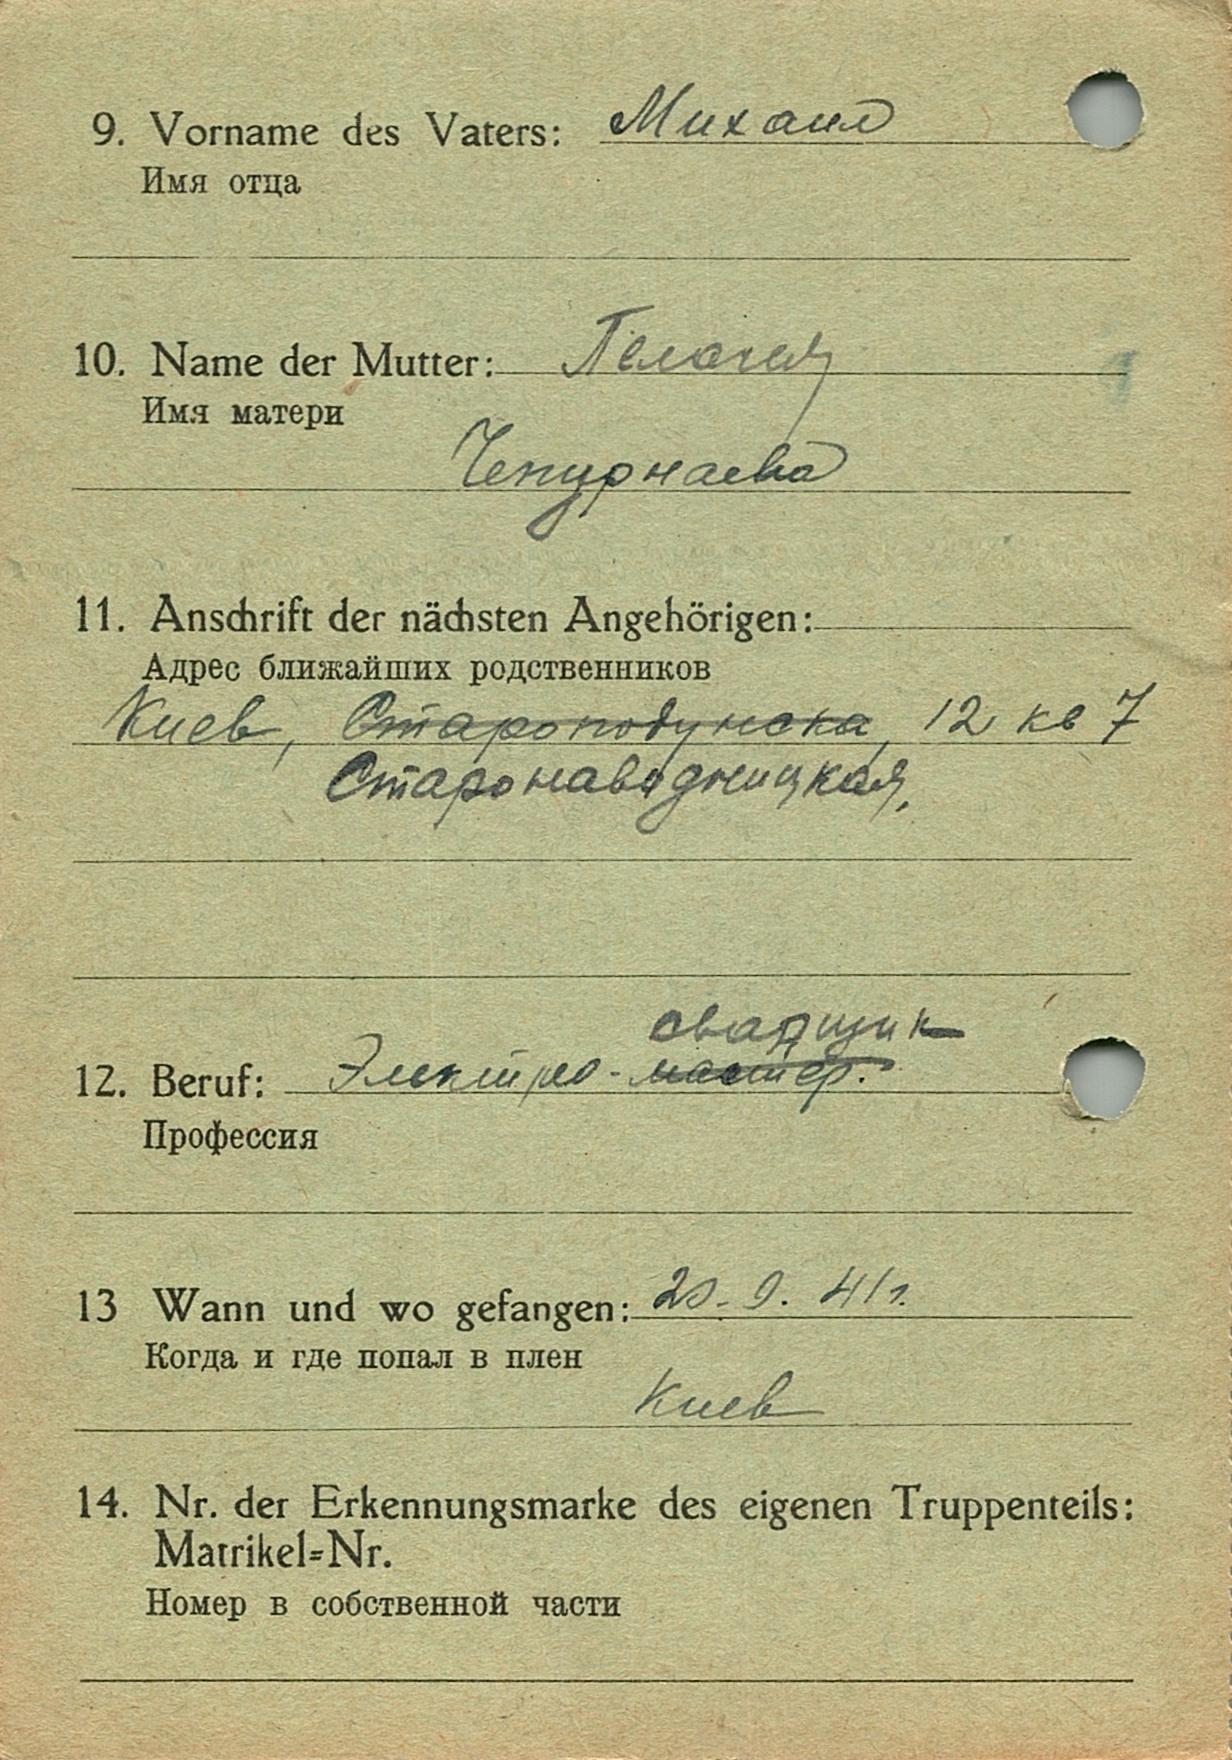 9. Vorname des Vaters: Михаил
Имя отца
10. Name der Mutter: Пелагея
Имя матери
Чепурнаева
11. Anschrift der nächsten Angehörigen:
Адрес ближайших родственников
Киев, 12 кв 7
Старонаводницкая,
сварщик
12. Beruf: Электро-мастер.
Профессия
13 Wann und wo gefangen: 20.9.41г.
Когда и где попал в плен
Киев
14. Nr. der Erkennungsmarke des eigenen Truppenteils:
Matrikel=Nr.
Номер в собственной части